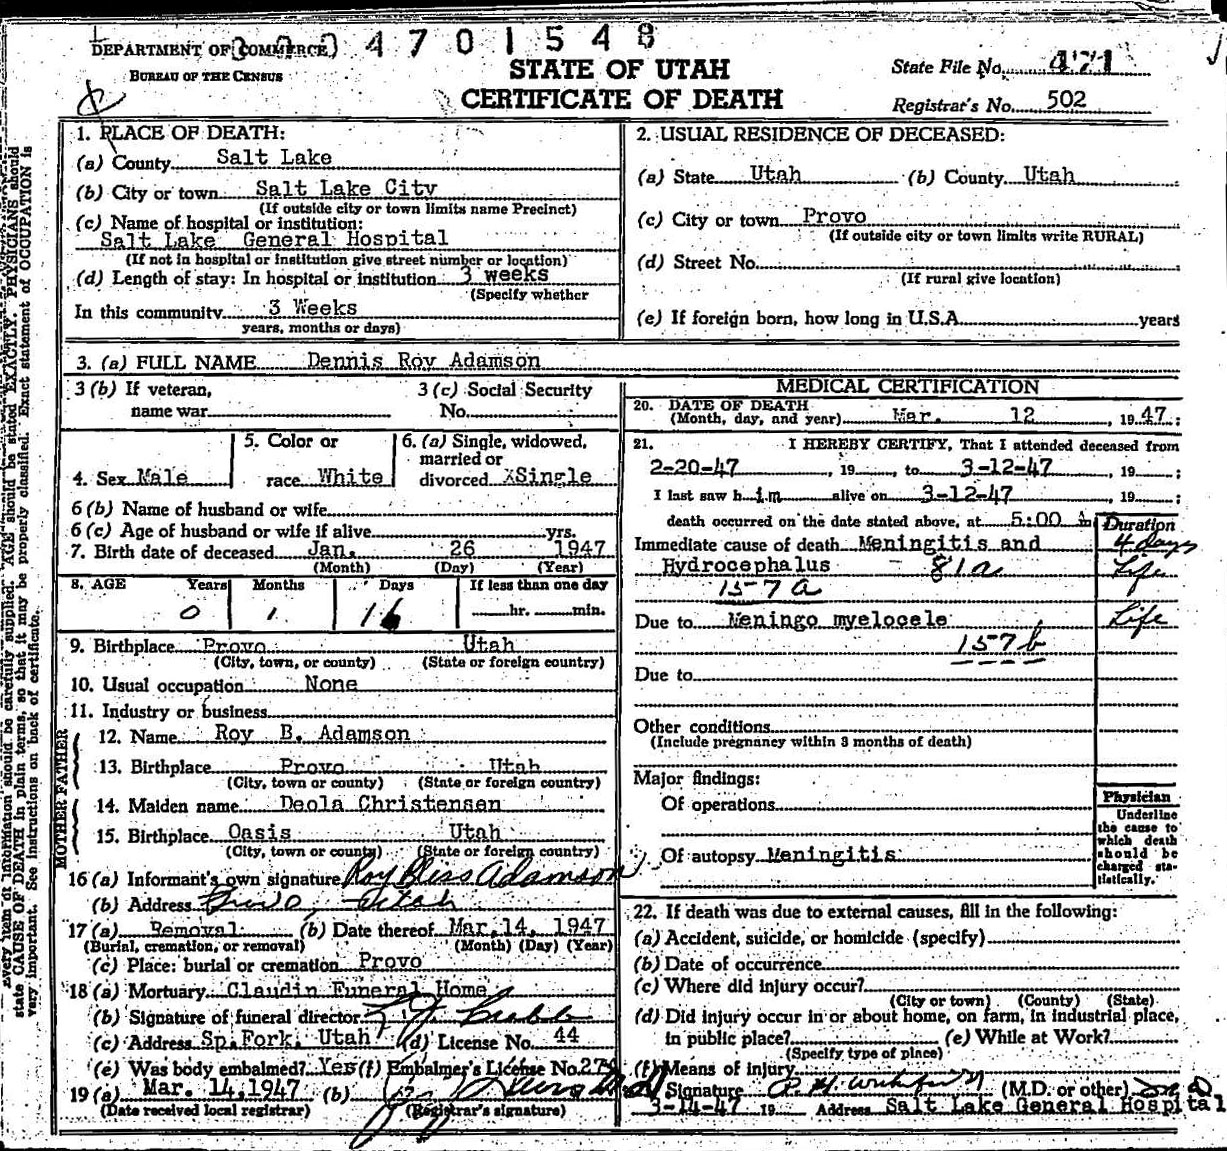 DEPARTMENT OF COMMERCE 4 7 0 1 5 4 8
BUREAU OF THE CENSUS
STATE OF UTAH
CERTIFICATE OF DEATH
State File No. 471
Registrar's No. 502
1. PLACE OF DEATH:
(a) County Salt Lake
(b) City or town Salt Lake City
(If outside city or town limits name Precinct)
(c) Name of hospital or institution:
Salt Lake General Hospital
(If not in hospital or institution give street number or location)
(d) Length of stay: In hospital or institution 3 weeks
(Specify whether
In this community 3 Weeks
years, months or days)
2. USUAL RESIDENCE OF DECEASED:
(a) State Utah (b) County Utah
(c) City or town Provo
(If outside city or town limits write RURAL)
(d) Street No.
(If rural give location)
(e) If foreign born, how long in U.S.A. years
3. (a) FULL NAME Dennis Roy Adamson
3 (b) If veteran,
name war
3 (c) Social Security
No.
4. Sex Male
5. Color or
race White
6. (a) Single, widowed,
married or
divorced XSingle
6 (b) Name of husband or wife
6 (c) Age of husband or wife if alive yrs.
7. Birth date of deceased Jan. 26 1947
(Month) (Day) (Year)
8. AGE Years Months Days If less than one day
0 1 16 hr. min.
9. Birthplace Provo Utah
(City, town, or county) (State or foreign country)
10. Usual occupation None
11. Industry or business
FATHER
12. Name Roy B. Adamson
13. Birthplace Provo Utah
(City, town or county) (State or foreign country)
MOTHER
14. Maiden name Deola Christensen
15. Birthplace Oasis Utah
(City, town or county) (State or foreign country)
16 (a) Informant's own signature Roy Bliss Adamson
(b) Address Provo, Utah
17 (a) Removal (b) Date thereof Mar. 14, 1947
(Burial, cremation, or removal) (Month) (Day) (Year)
(c) Place: burial or cremation Provo
18 (a) Mortuary Claudin Funeral Home
(b) Signature of funeral director
(c) Address Sp. Fork, Utah (d) License No. 44
(e) Was body embalmed? Yes (f) Embalmer's License No.
19 (a) Mar. 14, 1947 (b)
(Date received local registrar) (Registrar's signature)
MEDICAL CERTIFICATION
20. DATE OF DEATH
(Month, day, and year) Mar. 12 , 1947;
21. I HEREBY CERTIFY, That I attended deceased from
2-20-47 , 19 , to 3-12-47 , 19 ;
I last saw him alive on 3-12-47 , 19 ;
death occurred on the date stated above, at 5:00
Duration
Immediate cause of death Meningitis and 4 days
Hydrocephalus 81a Life
157a
Due to Meningo myelocele Life
157b
Due to
Other conditions
(Include pregnancy within 3 months of death)
Major findings:
Of operations
Of autopsy Meningitis
Physician
Underline
the cause to
which death
should be
charged sta-
tistically.
22. If death was due to external causes, fill in the following:
(a) Accident, suicide, or homicide (specify)
(b) Date of occurrence
(c) Where did injury occur?
(City or town) (County) (State)
(d) Did injury occur in or about home, on farm, in industrial place,
in public place? (e) While at Work?
(Specify type of place)
(f) Means of injury
Signature (M.D. or other) M D
3-14-47 19 Address Salt Lake General Hospital
Every item of information should be carefully supplied. AGE should be stated EXACTLY. PHYSICIANS should
state CAUSE OF DEATH in plain terms, so that it may be properly classified. Exact statement of OCCUPATION is
very important. See instructions on back of certificate.